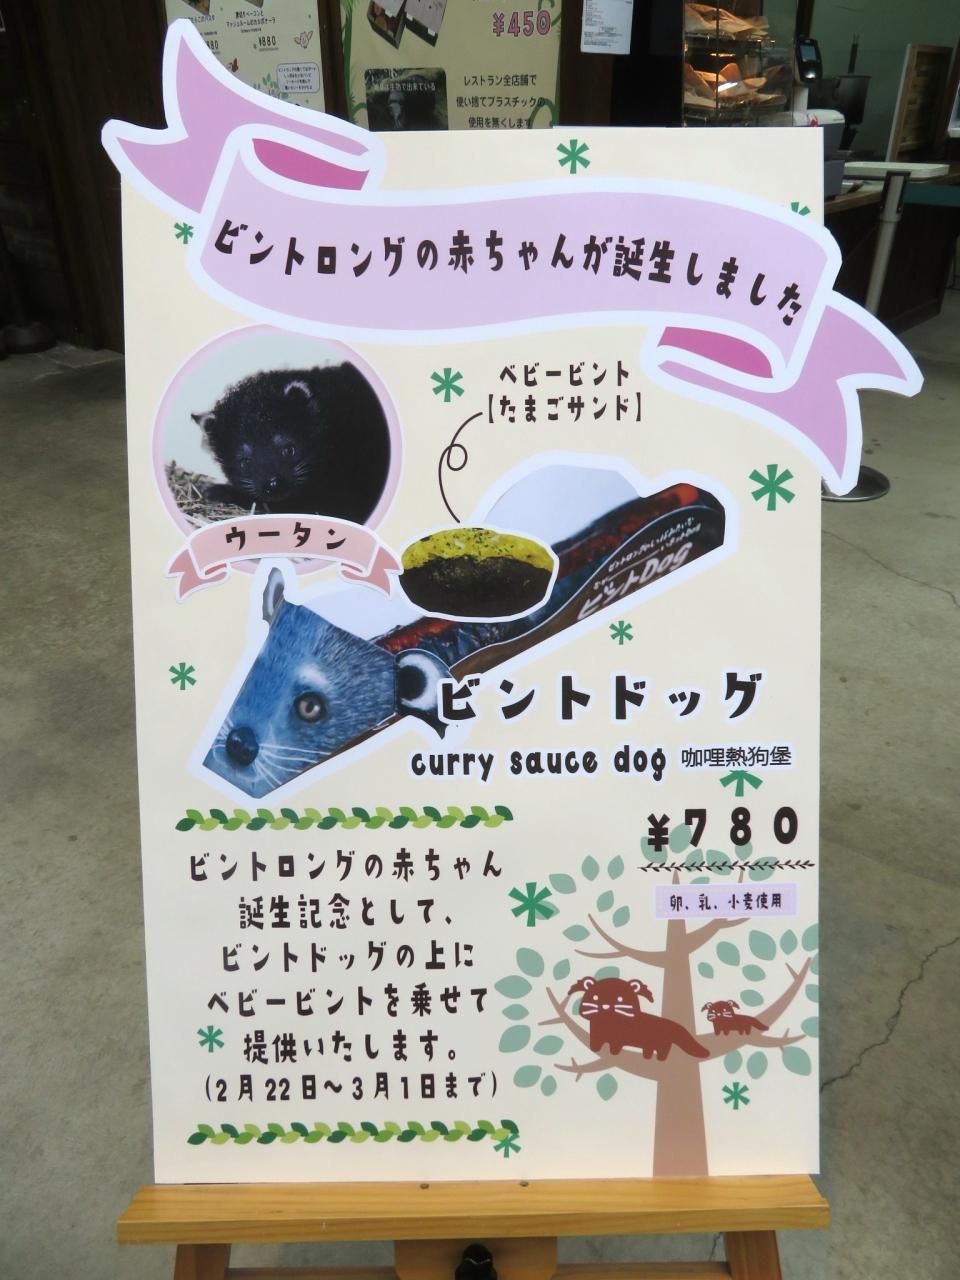 ¥880
¥450
レストラン全店舗で
使い捨てプラスチックの
使用を無くします
ビントロングの赤ちゃんが誕生しました
ベビービント
【たまごサンド】
ウータン
ビントDOG
ビントドッグ
curry sauce dog 咖哩熱狗堡
¥780
卵、乳、小麦使用
ビントロングの赤ちゃん
誕生記念として、
ビントドッグの上に
ベビービントを乗せて
提供いたします。
(2月22日～3月1日まで)